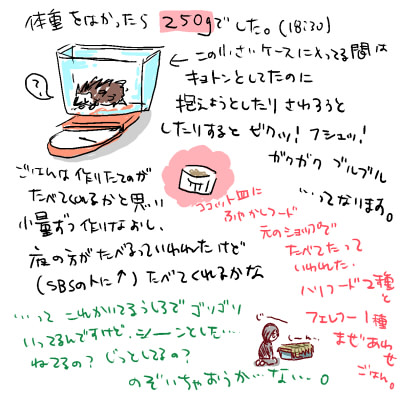 体重をはかったら 250gでした。(18:30)
?
← この小さいケースに入ってる間は
キョトンとしてたのに
抱えようとしたり さわろうと
したりすると ビクッ! フシュッ!
ガクガク ブルブル
…ってなります。
ごはんは作りたてのが
たべてくれるかと思い
少量ずつ作りなおし、
夜の方がたべるっていわれたけど
(SBSの人に↑)たべてくれるかな
ココット皿に
ふやかしフード
元のショップで
たべてたって
いわれた、
ハリフード2種
と
フェレフー1種
まぜあわせ
ごはん。
…って これかいてるうしろで ゴソゴソ
いってるんですけど、シーンとした…
ねてるの? じっとしてるの?
のぞいちゃおうか…な…。
じー
しーん